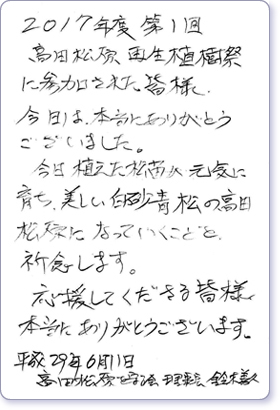 2017年度 第1回
高田松原 再生植樹祭
に参加された皆様、
今日は、本当にありがとう
ございました。
今日 植えた松苗が 元気に
育ち、美しい白砂青松の高田
松原に なっていくことを、
祈念します。
応援してくださる皆様
本当に ありがとうございます。
平成29年6月11日
高田松原を守る会 理事長 鈴木善久